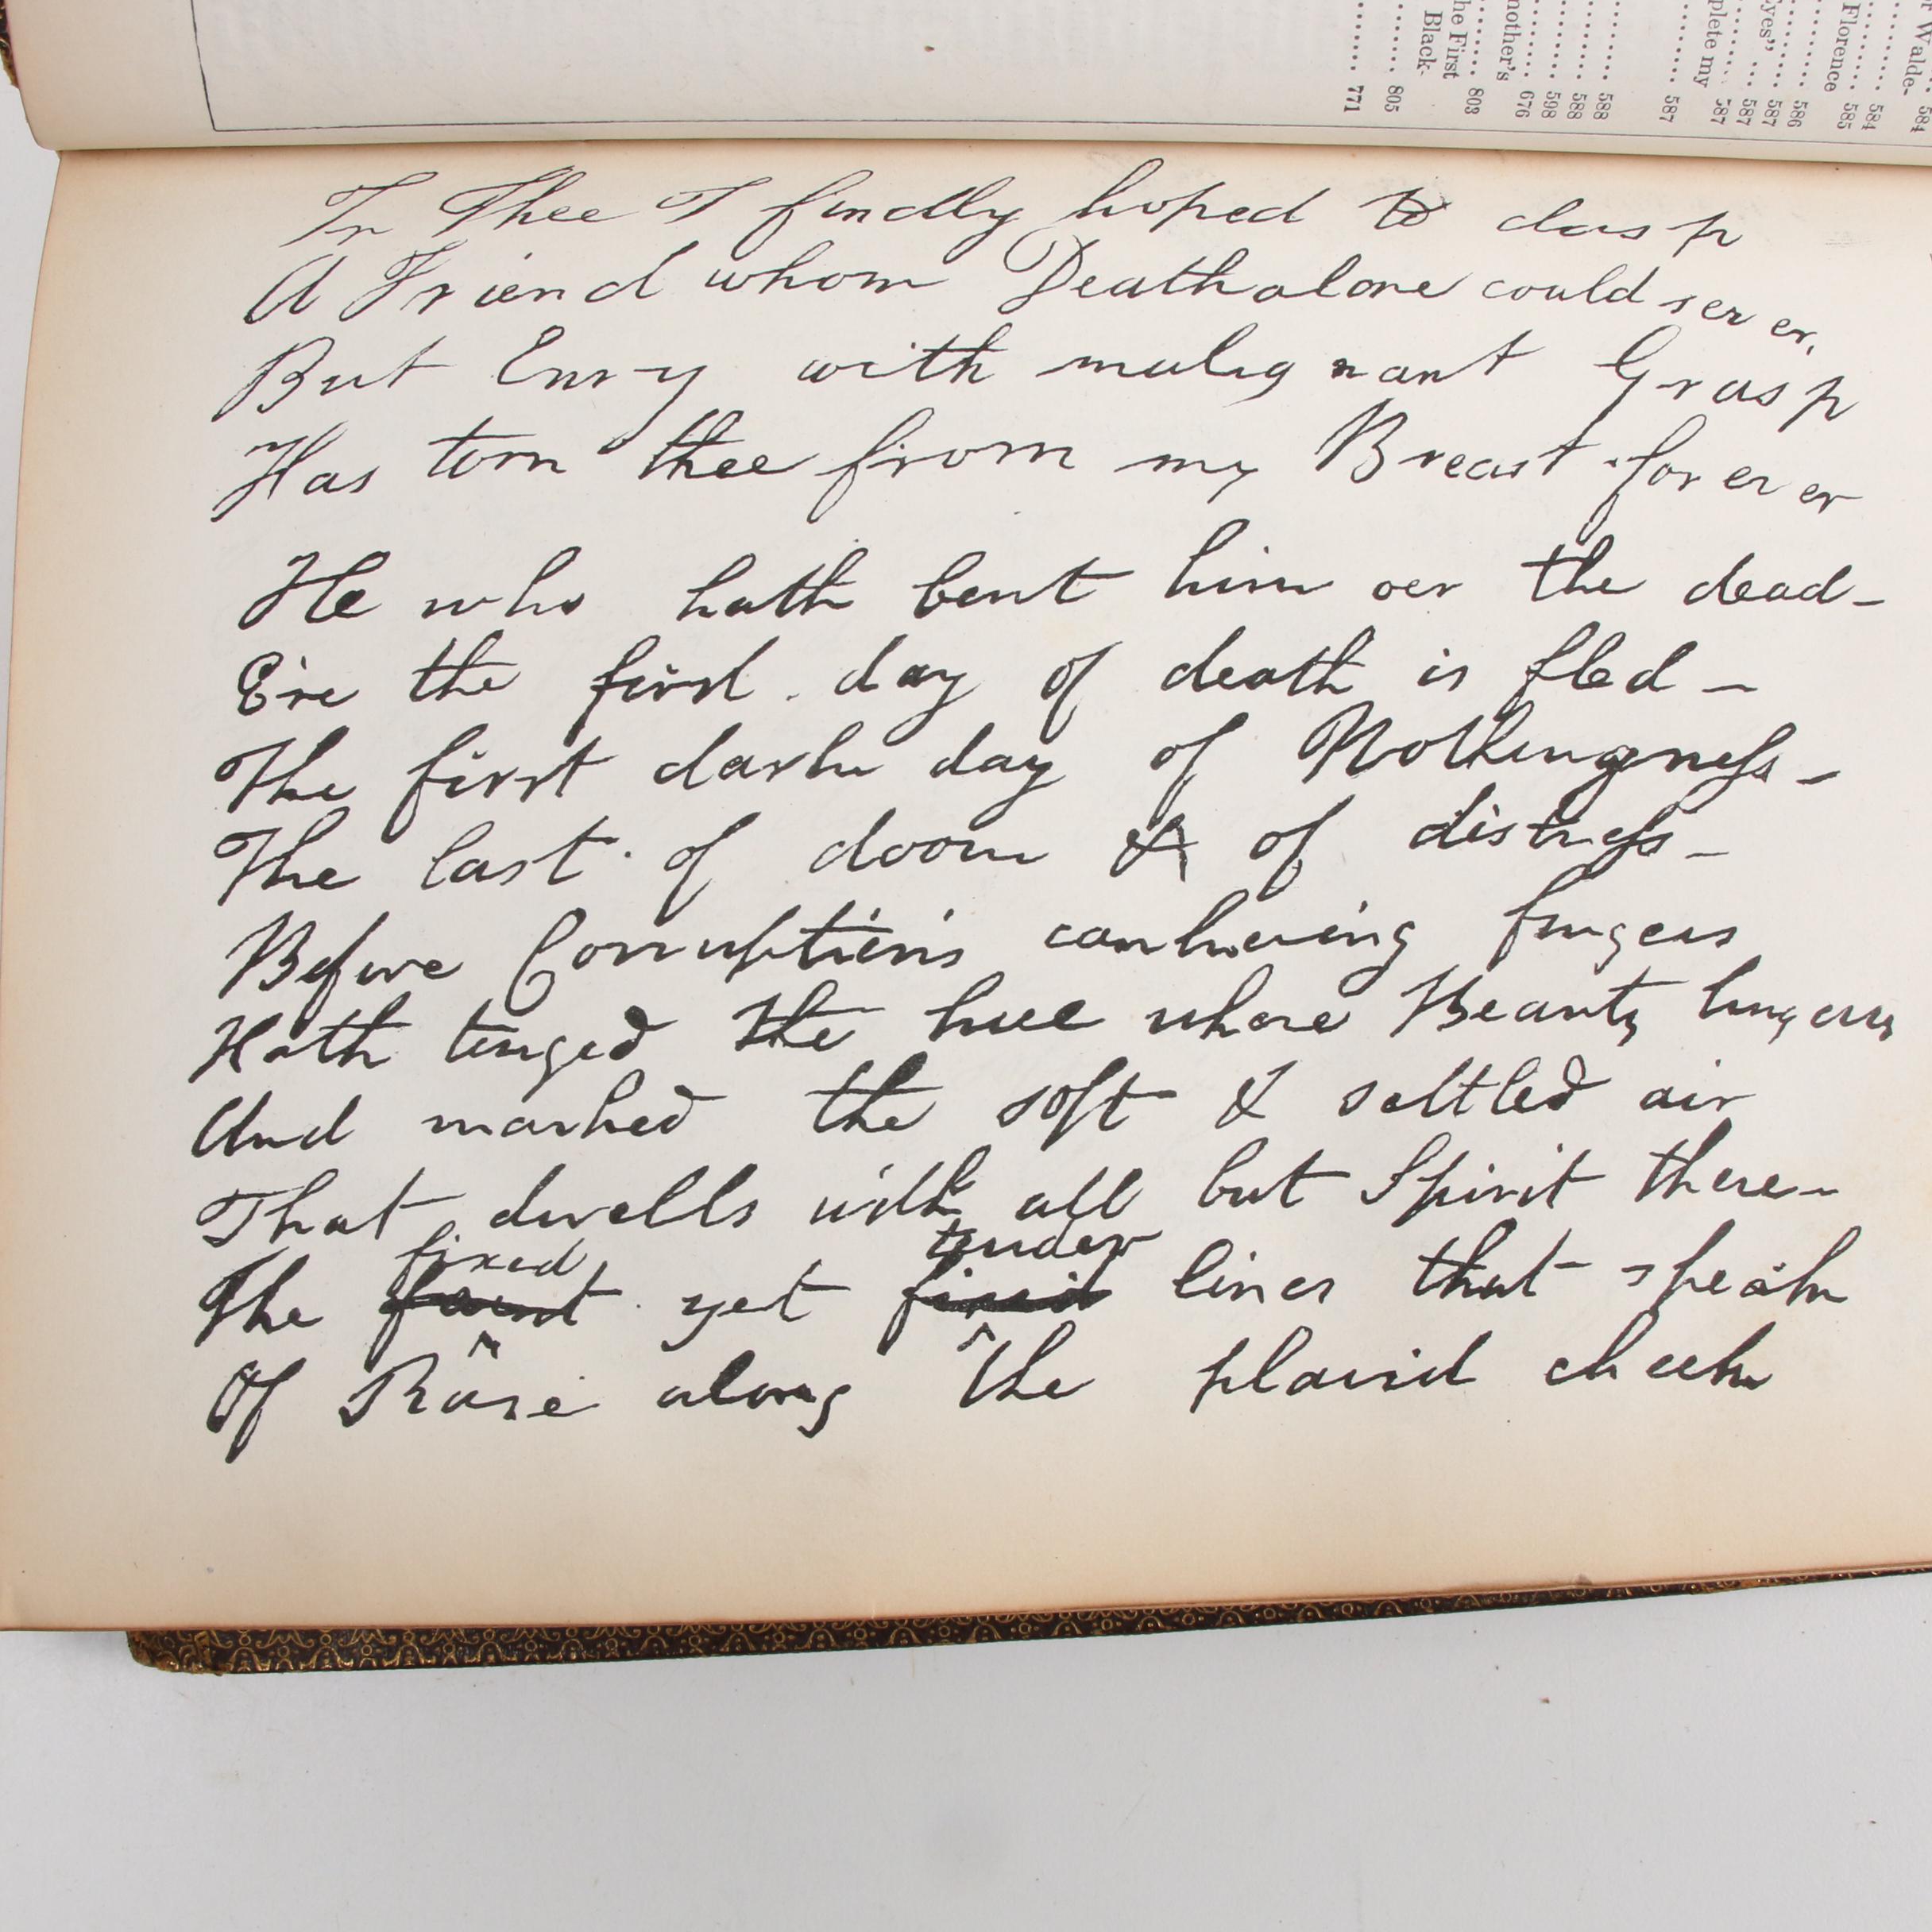 r Walde-
584
584
Florence
585
586
Eyes" ... 587
587
plete my
587
587
588
588
598
nother's
676
he First
803
Black-
805
771
In Thee I fondly hoped to clasp
A Friend whom Death alone could sever,
But Envy with malignant Grasp
Has torn thee from my Breast for ever
He who hath bent him oer the dead-
E're the first day of death is fled -
The first dark day of Nothingness -
The last of doom & of distress -
Before Corruption's cankering fingers
Hath tinged the hue where Beauty lingers
And marked the soft & settled air
That dwells with all but Spirit there-
fixed tender
The faint yet lines that speak
Of Rase along the placid cheek